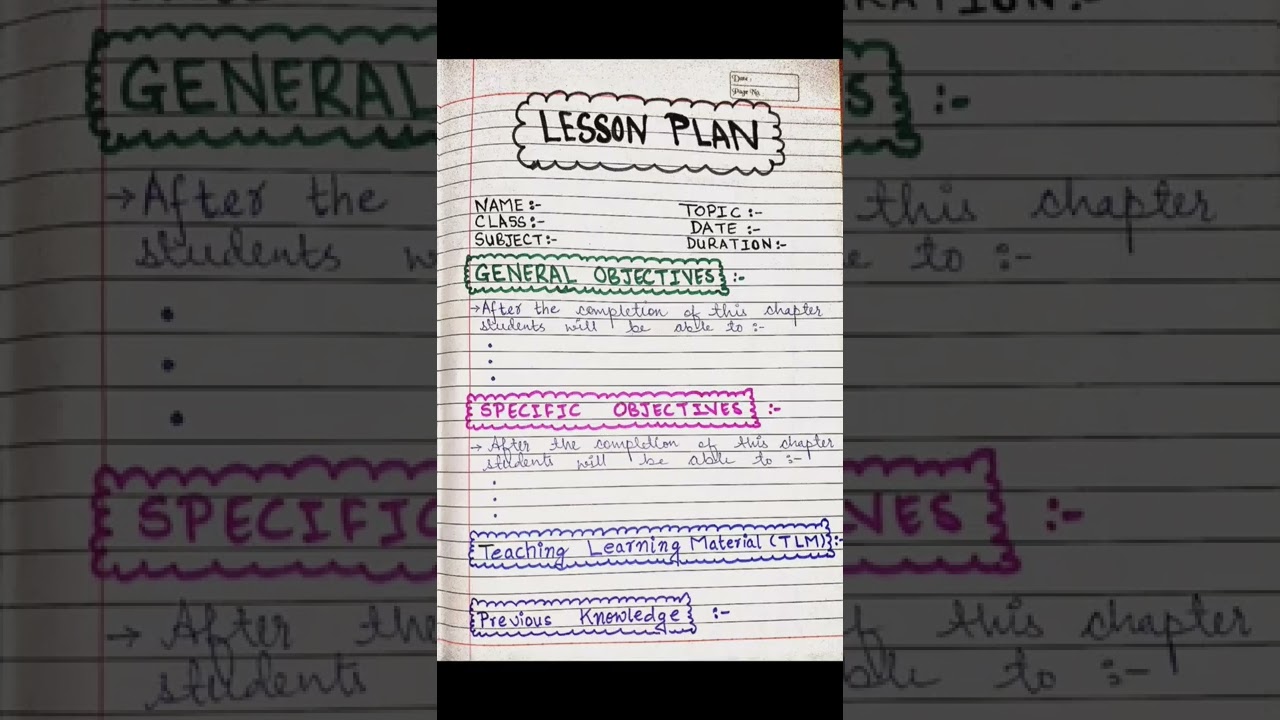 Date.
Page No.
LESSON PLAN
NAME:-
CLASS:-
SUBJECT:-
TOPIC:-
DATE:-
DURATION:-
GENERAL OBJECTIVES :-
→ After the completion of this chapter
students will be able to :-
•
•
•
SPECIFIC OBJECTIVES :-
→ After the completion of this chapter
students will be able to :-
•
•
•
Teaching Learning Material (TLM) :-
Previous Knowledge :-